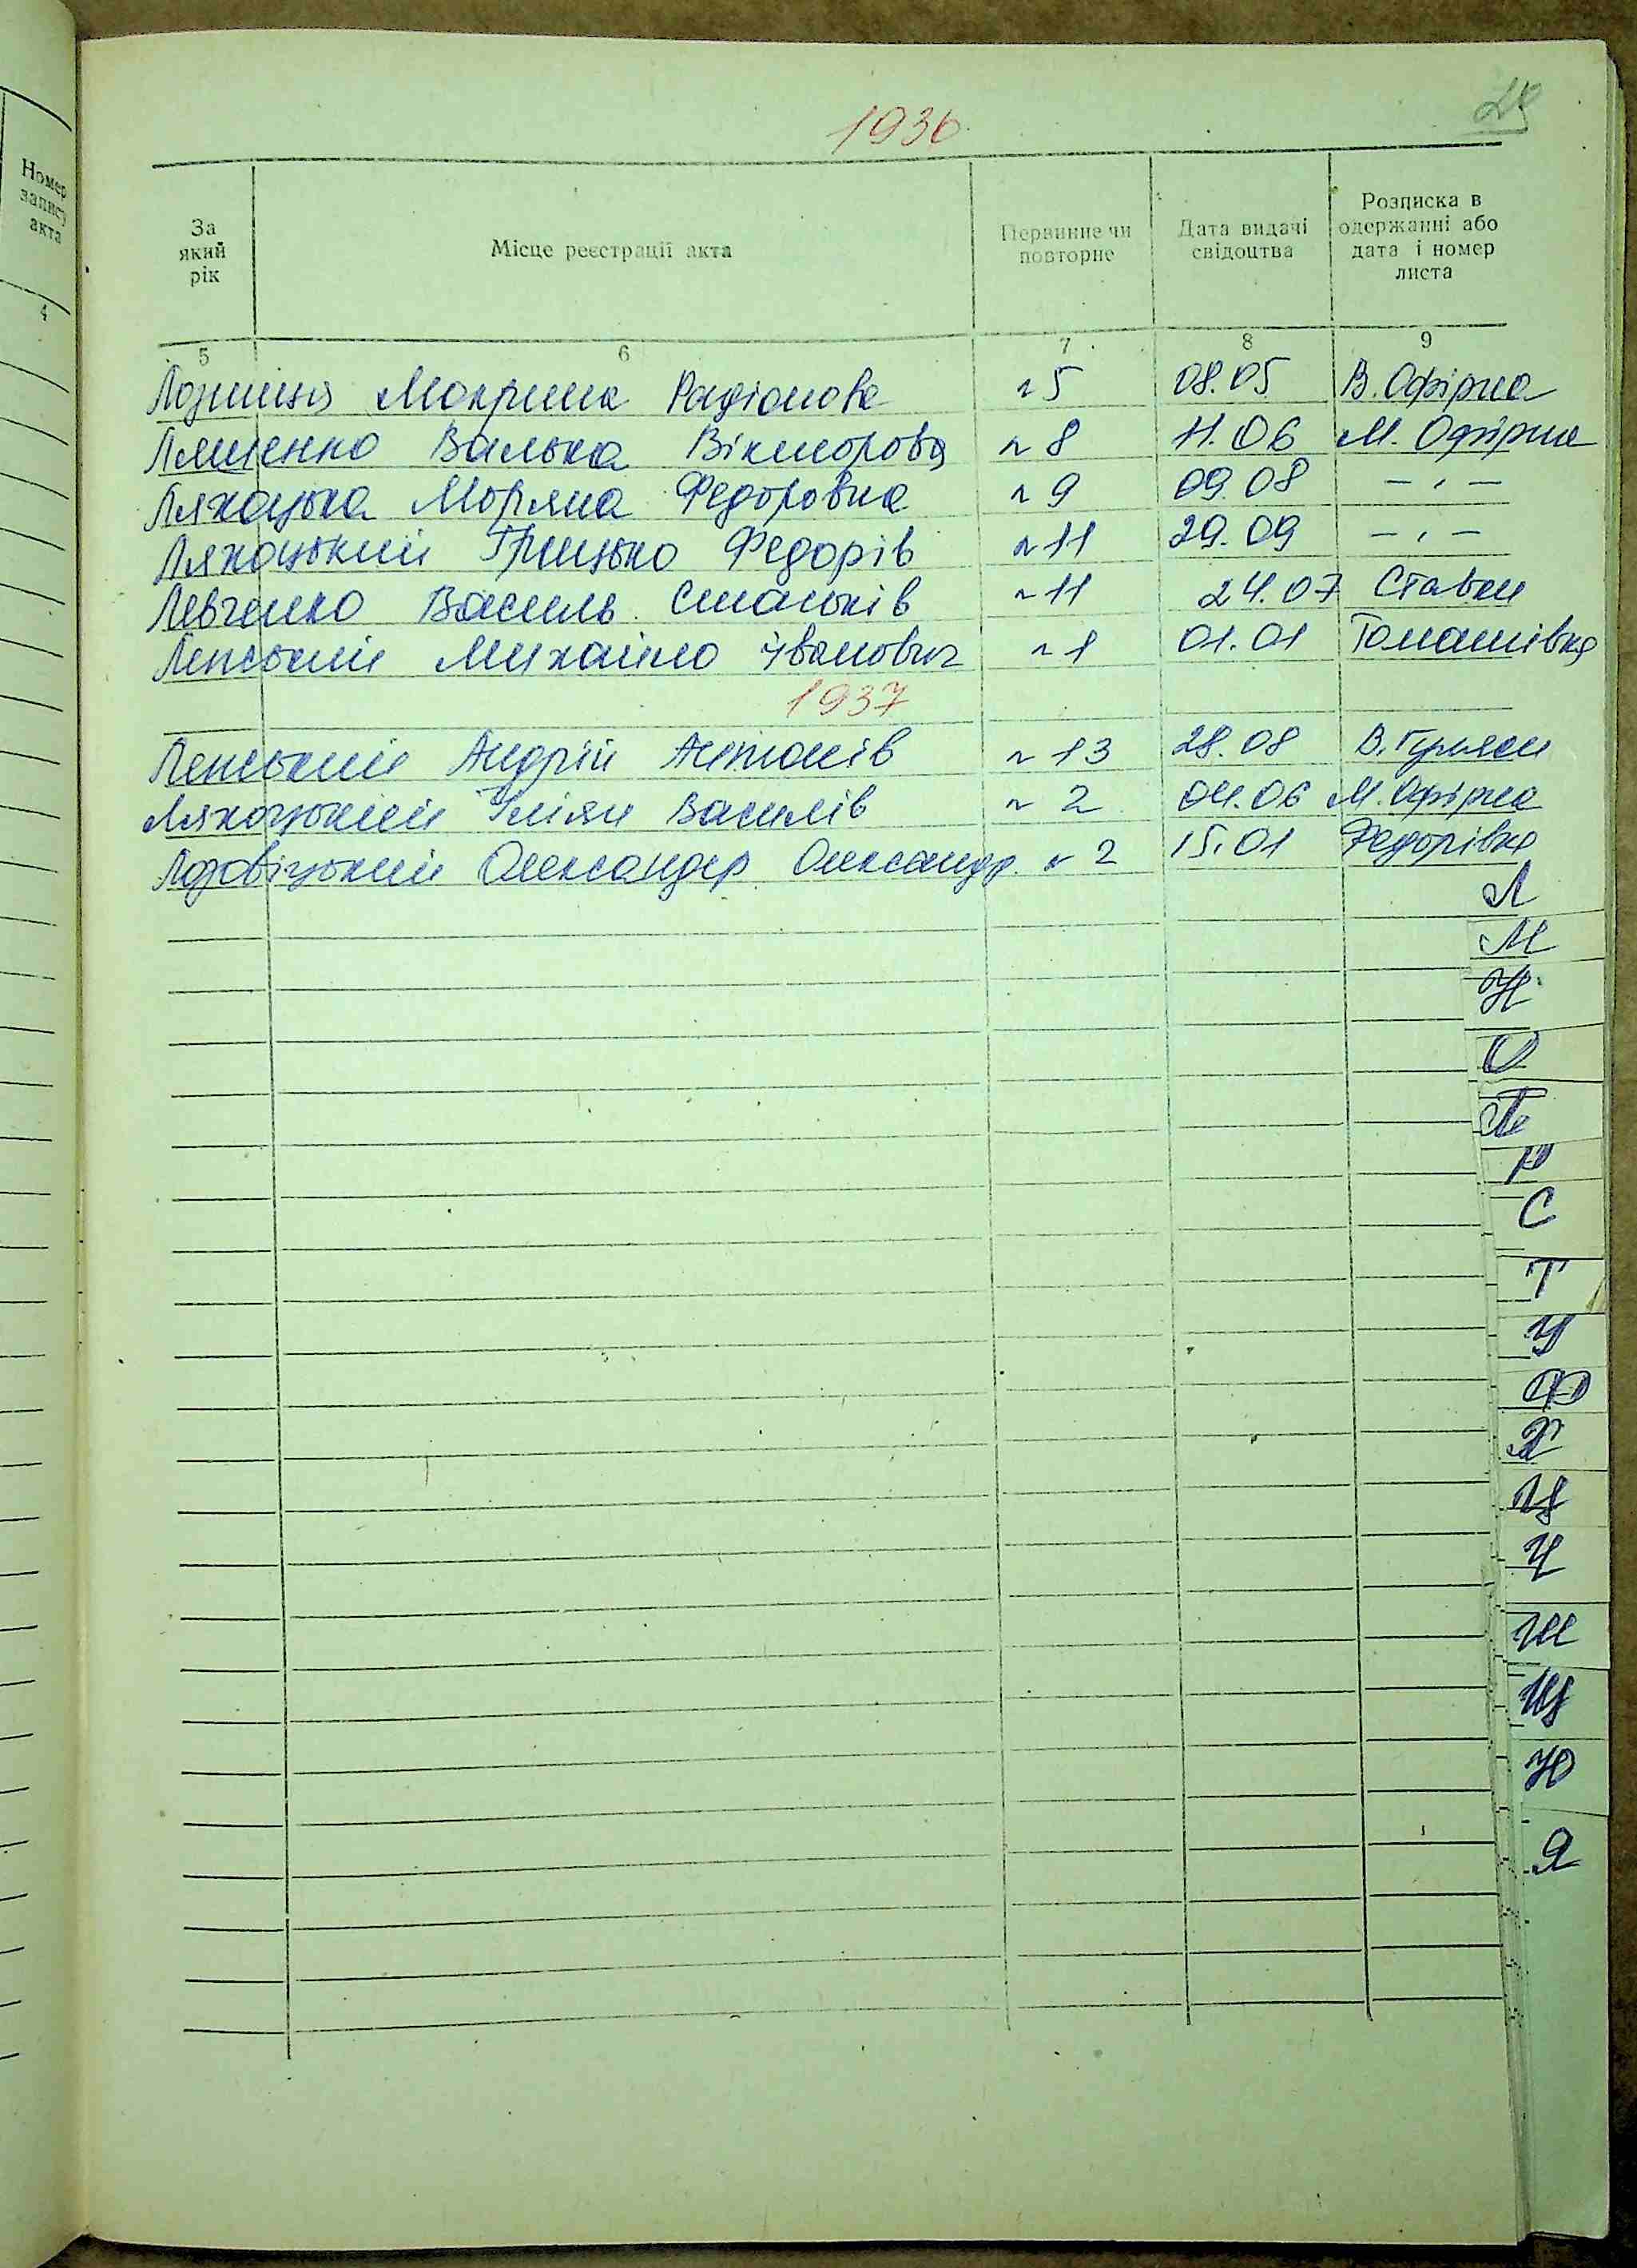 Номер
запису
акта
4
1936
За
який
рік
Місце реєстрації акта
Первинне чи
повторне
Дата видачі
свідоцтва
Розписка в
одержанні або
дата і номер
листа
5 6 7 8 9
Мокрина Радіонова н 5 08.05 В. Офірна
Ляшенко Валька Вікторова н 8 11.06 М. Офірна
Ляхоцька Моряна Федоровна н 9 09.08 – " –
Ляхоцький Грицько Федорів н 11 29.09 – " –
Левченко Василь Станьків н 11 24.07 Ставки
Ленський Михайло Іванович н 1 01.01 Томашівка
1937
Ленський Андрій Антонів н 13 28.08 В.
Ляхоцький Василів н 2 04.06 М. Офірна
Олександр Олександр. н 2 15.01 Федорівка
Л
М
Н
О
П
Р
С
Т
У
Ф
Х
Ц
Ч
Ш
Щ
Ю
Я